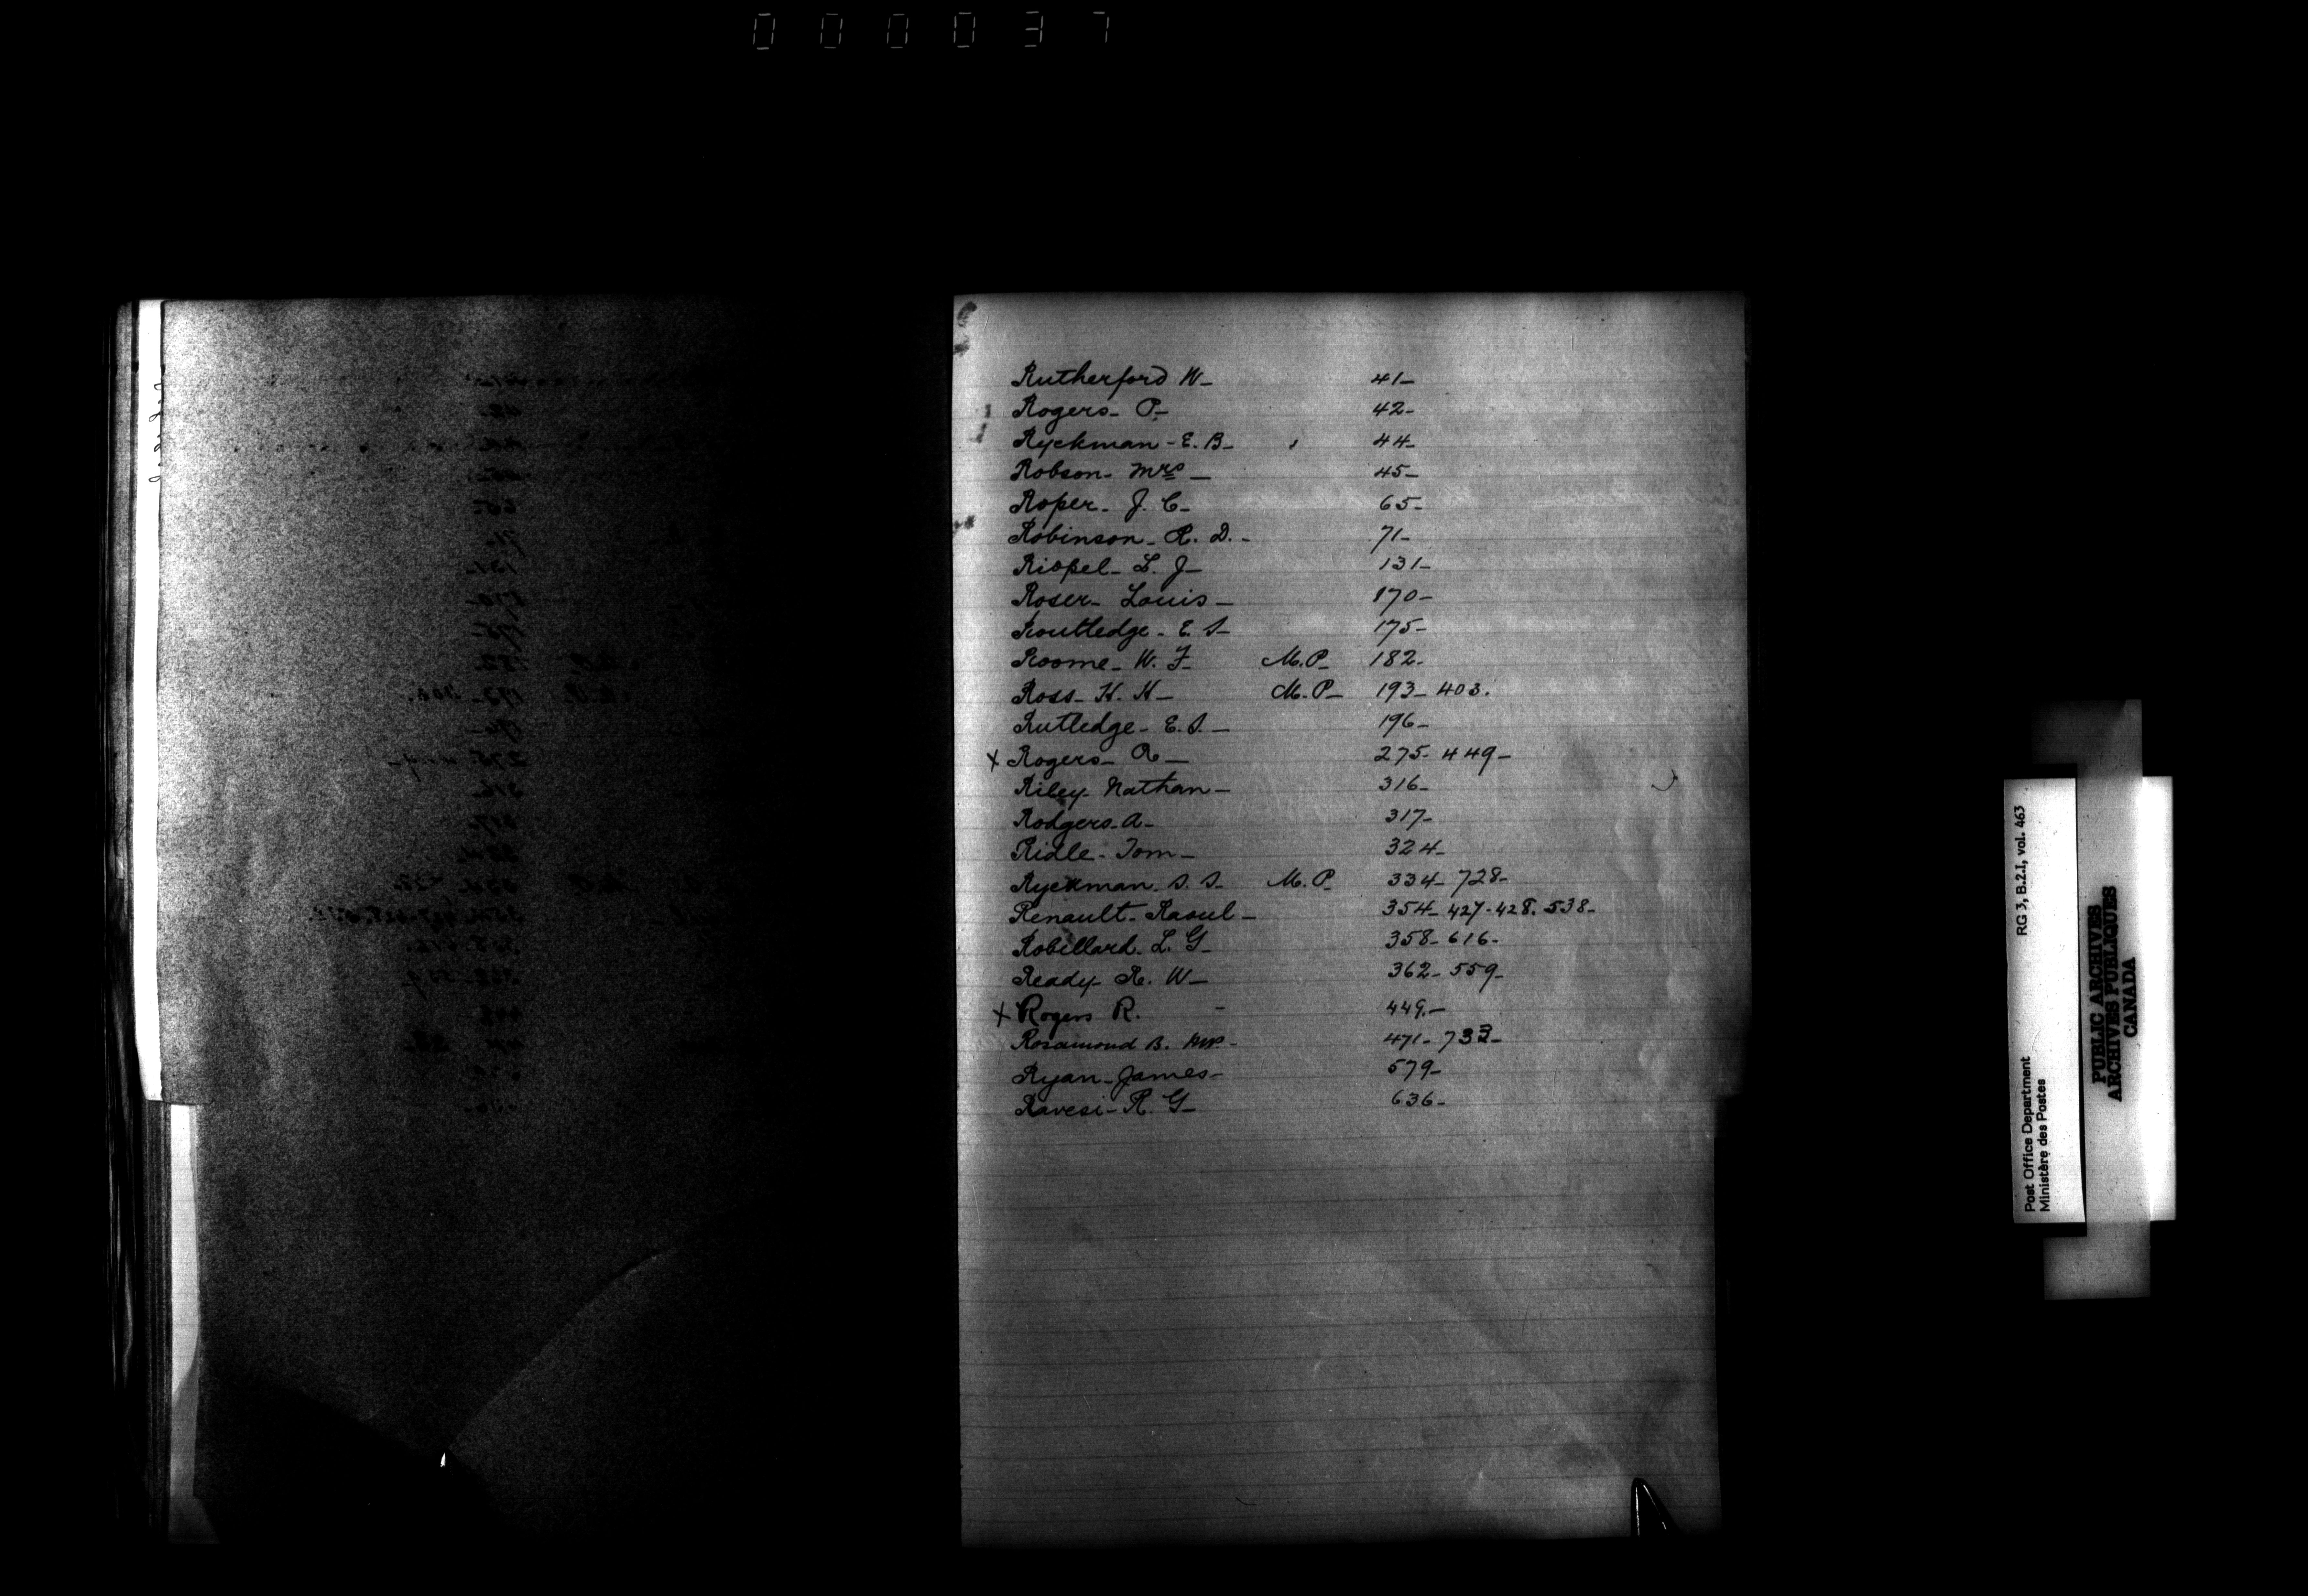 000037
Rutherford W- 41-
Rogers- P- 42-
Ryckman- E. B- 44-
Robson- Mrs - 45-
Roper- J. C- 65-
Robinson- R. D.- 71-
Riopel- L. J- 131-
Roser- Louis- 170-
Routledge- E. S- 175-
Roome- W. F- M.P- 182-
Ross- H. H- M.P- 193- 403.
Rutledge- E. S.- 196-
x Rogers- R- 275- 449-
Riley- Nathan- 316-
Rodgers- A- 317-
Ridle- Tom- 324-
Ryckman. S. S- M.P- 334- 728-
Renault- Raoul- 354- 427- 428. 538-
Robillard- L. G- 358- 616-
Ready- R. W- 362- 559-
x Rogers R. - 449.-
Rosamond B. MP.- 471- 733-
Ryan- James- 579-
Ravesi- R. G- 636-
Post Office Department RG 3, B.2.I, vol. 463
Ministère des Postes
PUBLIC ARCHIVES
ARCHIVES PUBLIQUES
CANADA